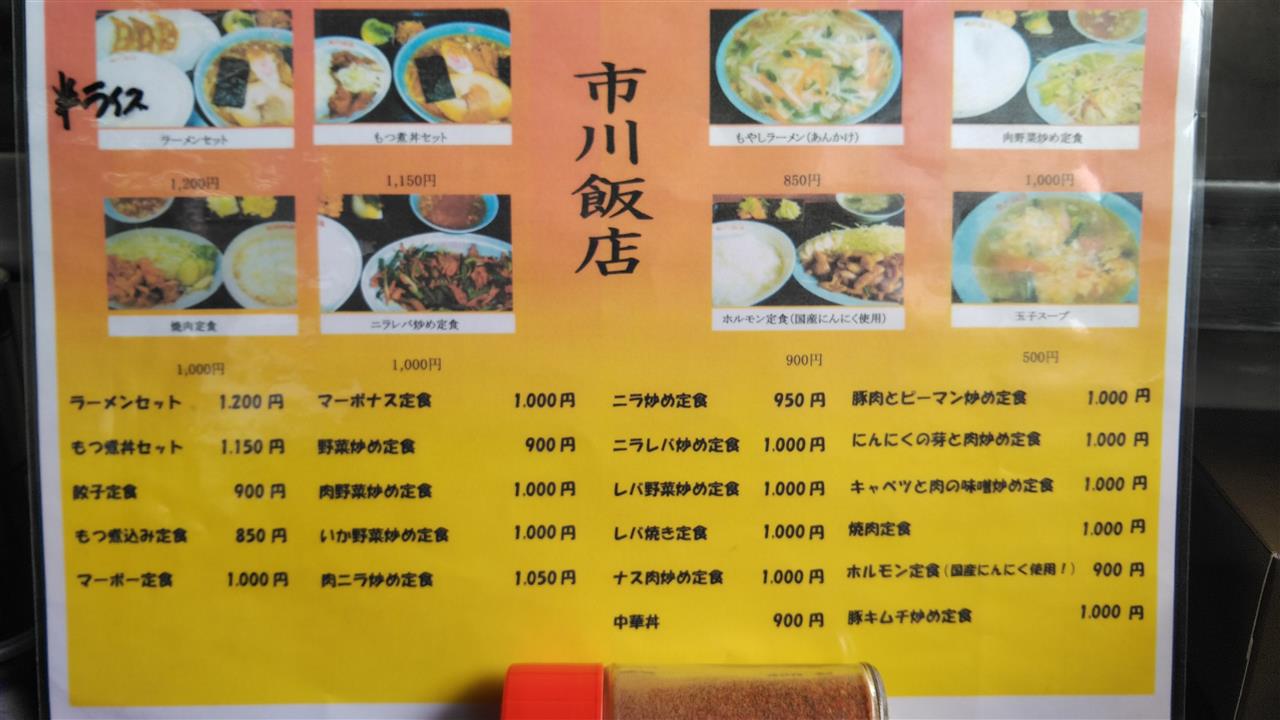 半ライス
ラーメンセット
1,200円
もつ煮丼セット
1,150円
市川飯店
もやしラーメン(あんかけ)
850円
肉野菜炒め定食
1,000円
焼肉定食
1,000円
ニラレバ炒め定食
1,000円
ホルモン定食(国産にんにく使用)
900円
玉子スープ
500円
ラーメンセット 1.200円
もつ煮丼セット 1.150円
餃子定食 900円
もつ煮込み定食 850円
マーボー定食 1.000円
マーボナス定食 1.000円
野菜炒め定食 900円
肉野菜炒め定食 1.000円
いか野菜炒め定食 1.000円
肉ニラ炒め定食 1.050円
ニラ炒め定食 950円
ニラレバ炒め定食 1.000円
レバ野菜炒め定食 1.000円
レバ焼き定食 1.000円
ナス肉炒め定食 1.000円
中華丼 900円
豚肉とピーマン炒め定食 1.000円
にんにくの芽と肉炒め定食 1.000円
キャベツと肉の味噌炒め定食 1.000円
焼肉定食 1.000円
ホルモン定食(国産にんにく使用!) 900円
豚キムチ炒め定食 1.000円